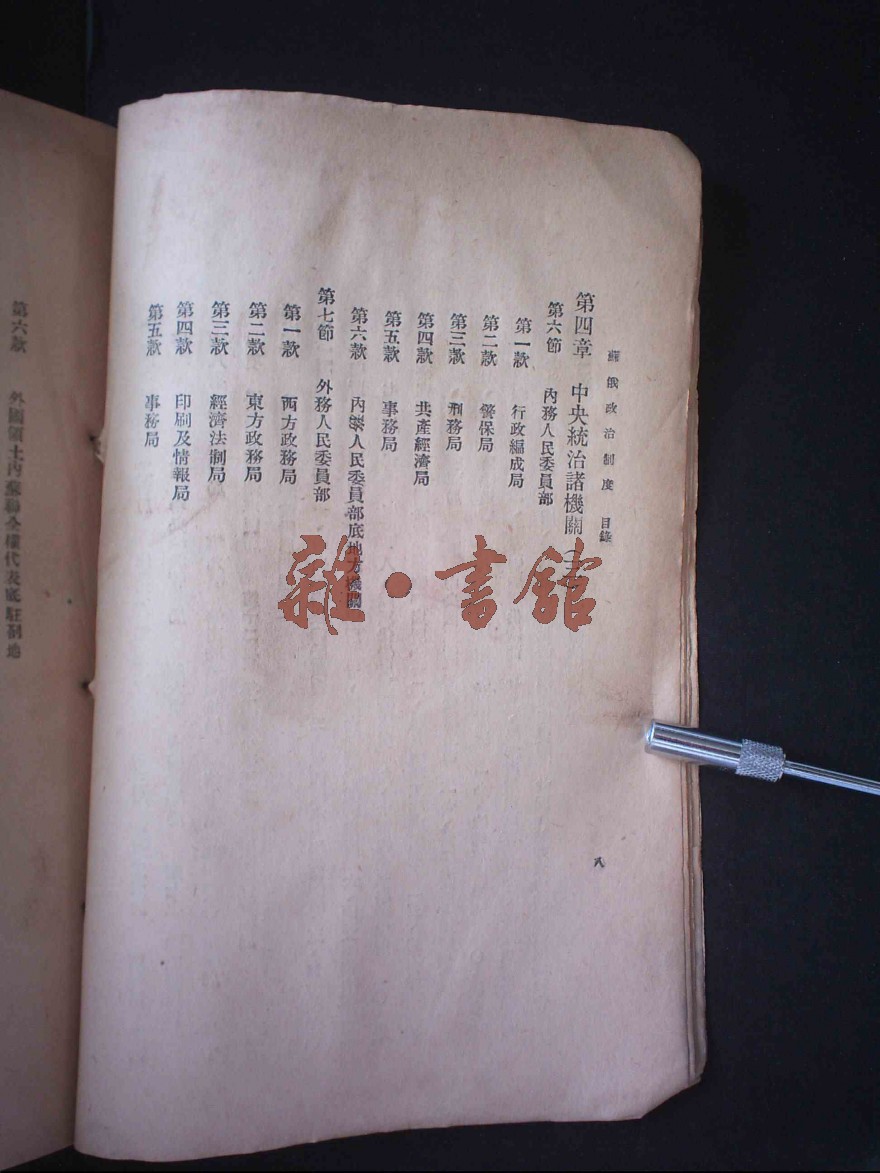 蘇俄政治制度 目錄
八
第四章 中央統治諸機關
第六節 內務人民委員部
第一款 行政編成局
第二款 警保局
第三款 刑務局
第四款 共產經濟局
第五款 事務局
第六款 內務人民委員部底地方機關
第七節 外務人民委員部
第一款 西方政務局
第二款 東方政務局
第三款 經濟法制局
第四款 印刷及情報局
第五款 事務局
第六款 外國領土內蘇聯全權代表底駐劄地
雜·書館